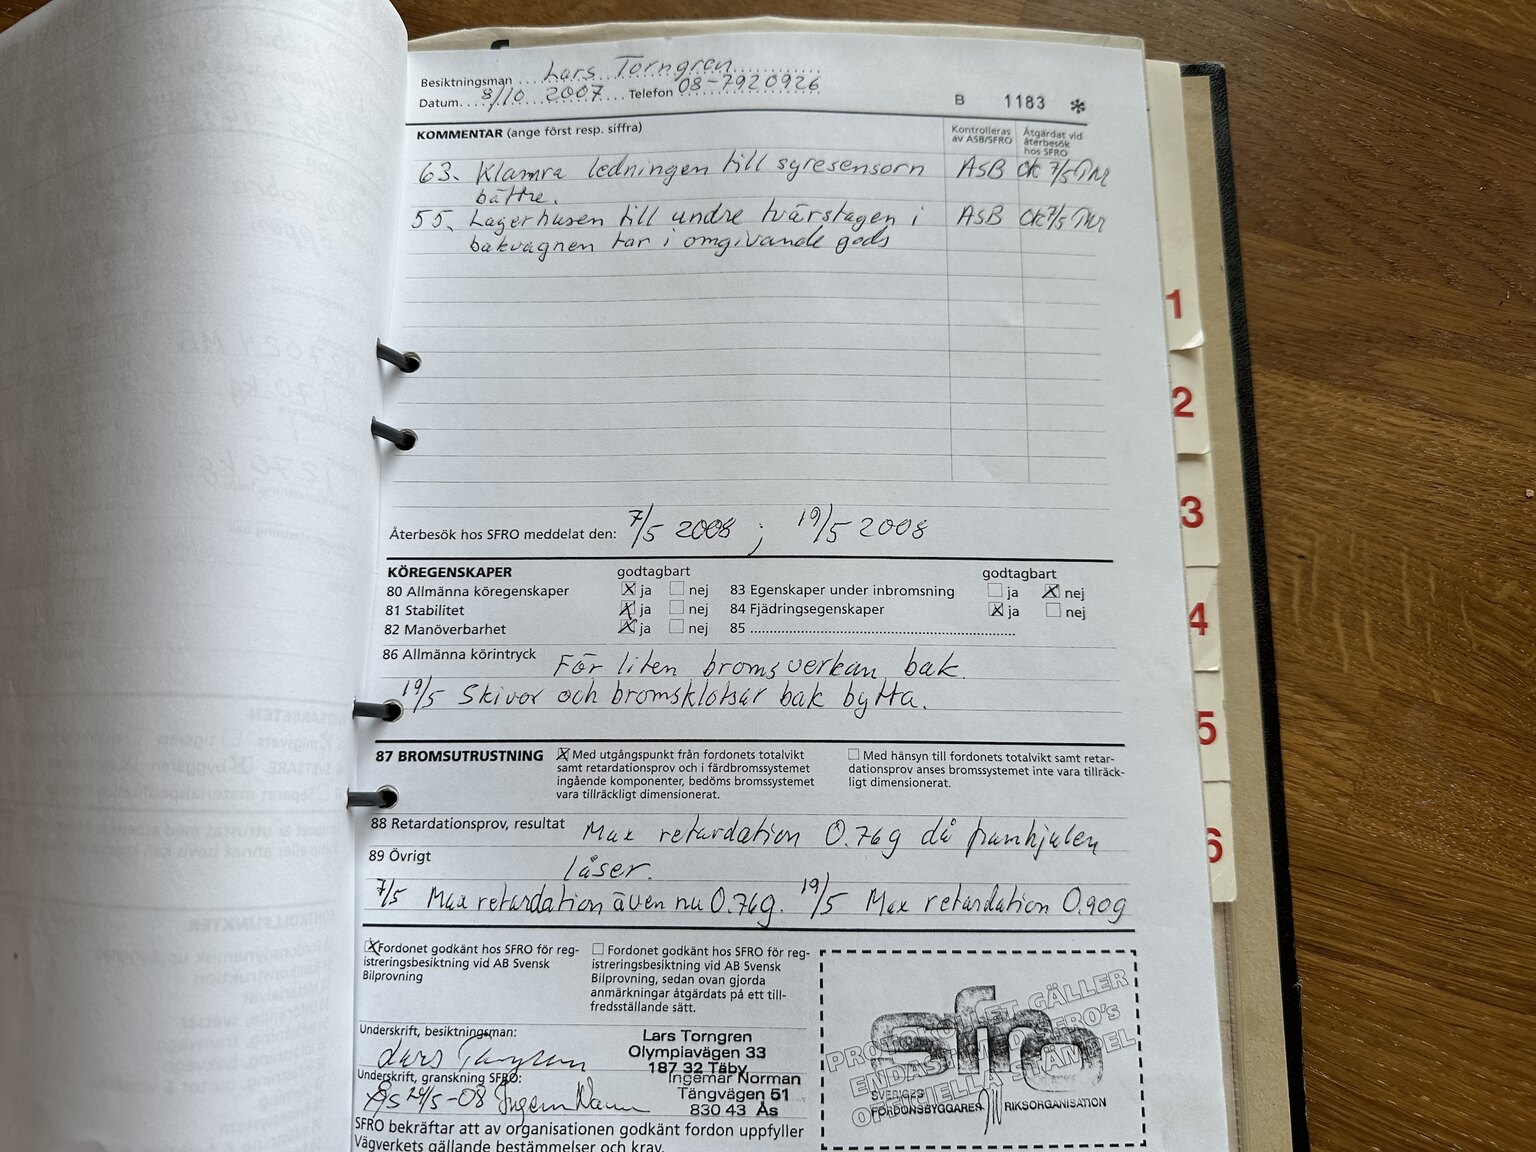 Besiktningsman Lars Torngren
Datum 8/10 2007 Telefon 08-7920926
B 1183 ✻
KOMMENTAR (ange först resp. siffra)
Kontrolleras av ASB/SFRO
Åtgärdat vid återbesök hos SFRO
63. Klamra ledningen till syresensorn ASB Ok 7/5
bättre.
55. Lagerhusen till undre tvärstagen i ASB Ok 7/5
bakvagnen tar i omgivande gods
1
2
3
4
5
6
Återbesök hos SFRO meddelat den: 7/5 2008 ; 19/5 2008
KÖREGENSKAPER godtagbart godtagbart
80 Allmänna köregenskaper ☒ ja ☐ nej 83 Egenskaper under inbromsning ☐ ja ☒ nej
81 Stabilitet ☒ ja ☐ nej 84 Fjädringsegenskaper ☒ ja ☐ nej
82 Manöverbarhet ☒ ja ☐ nej 85
86 Allmänna körintryck För liten bromsverkan bak.
19/5 Skivor och bromsklotsar bak bytta.
87 BROMSUTRUSTNING
☒ Med utgångspunkt från fordonets totalvikt
samt retardationsprov och i färdbromssystemet
ingående komponenter, bedöms bromssystemet
vara tillräckligt dimensionerat.
☐ Med hänsyn till fordonets totalvikt samt retar-
dationsprov anses bromssystemet inte vara tillräck-
ligt dimensionerat.
88 Retardationsprov, resultat Max retardation 0.76g då framhjulen
89 Övrigt låser.
7/5 Max retardation även nu 0.76g. 19/5 Max retardation 0.90g
☒ Fordonet godkänt hos SFRO för reg-
istreringsbesiktning vid AB Svensk
Bilprovning
☐ Fordonet godkänt hos SFRO för reg-
istreringsbesiktning vid AB Svensk
Bilprovning, sedan ovan gjorda
anmärkningar åtgärdats på ett till-
fredsställande sätt.
Underskrift, besiktningsman:
Lars Torngren
Lars Torngren
Olympiavägen 33
187 32 Täby
Underskrift, granskning SFRO:
Ås 24/5-08 Ingemar Norman
Ingemar Norman
Tängvägen 51
830 43 Ås
PROTOKOLLET GÄLLER
ENDAST MED SFRO's
OFFICIELLA STÄMPEL
sfro
SVERIGES
FORDONSBYGGARES RIKSORGANISATION
SFRO bekräftar att av organisationen godkänt fordon uppfyller
Vägverkets gällande bestämmelser och krav.